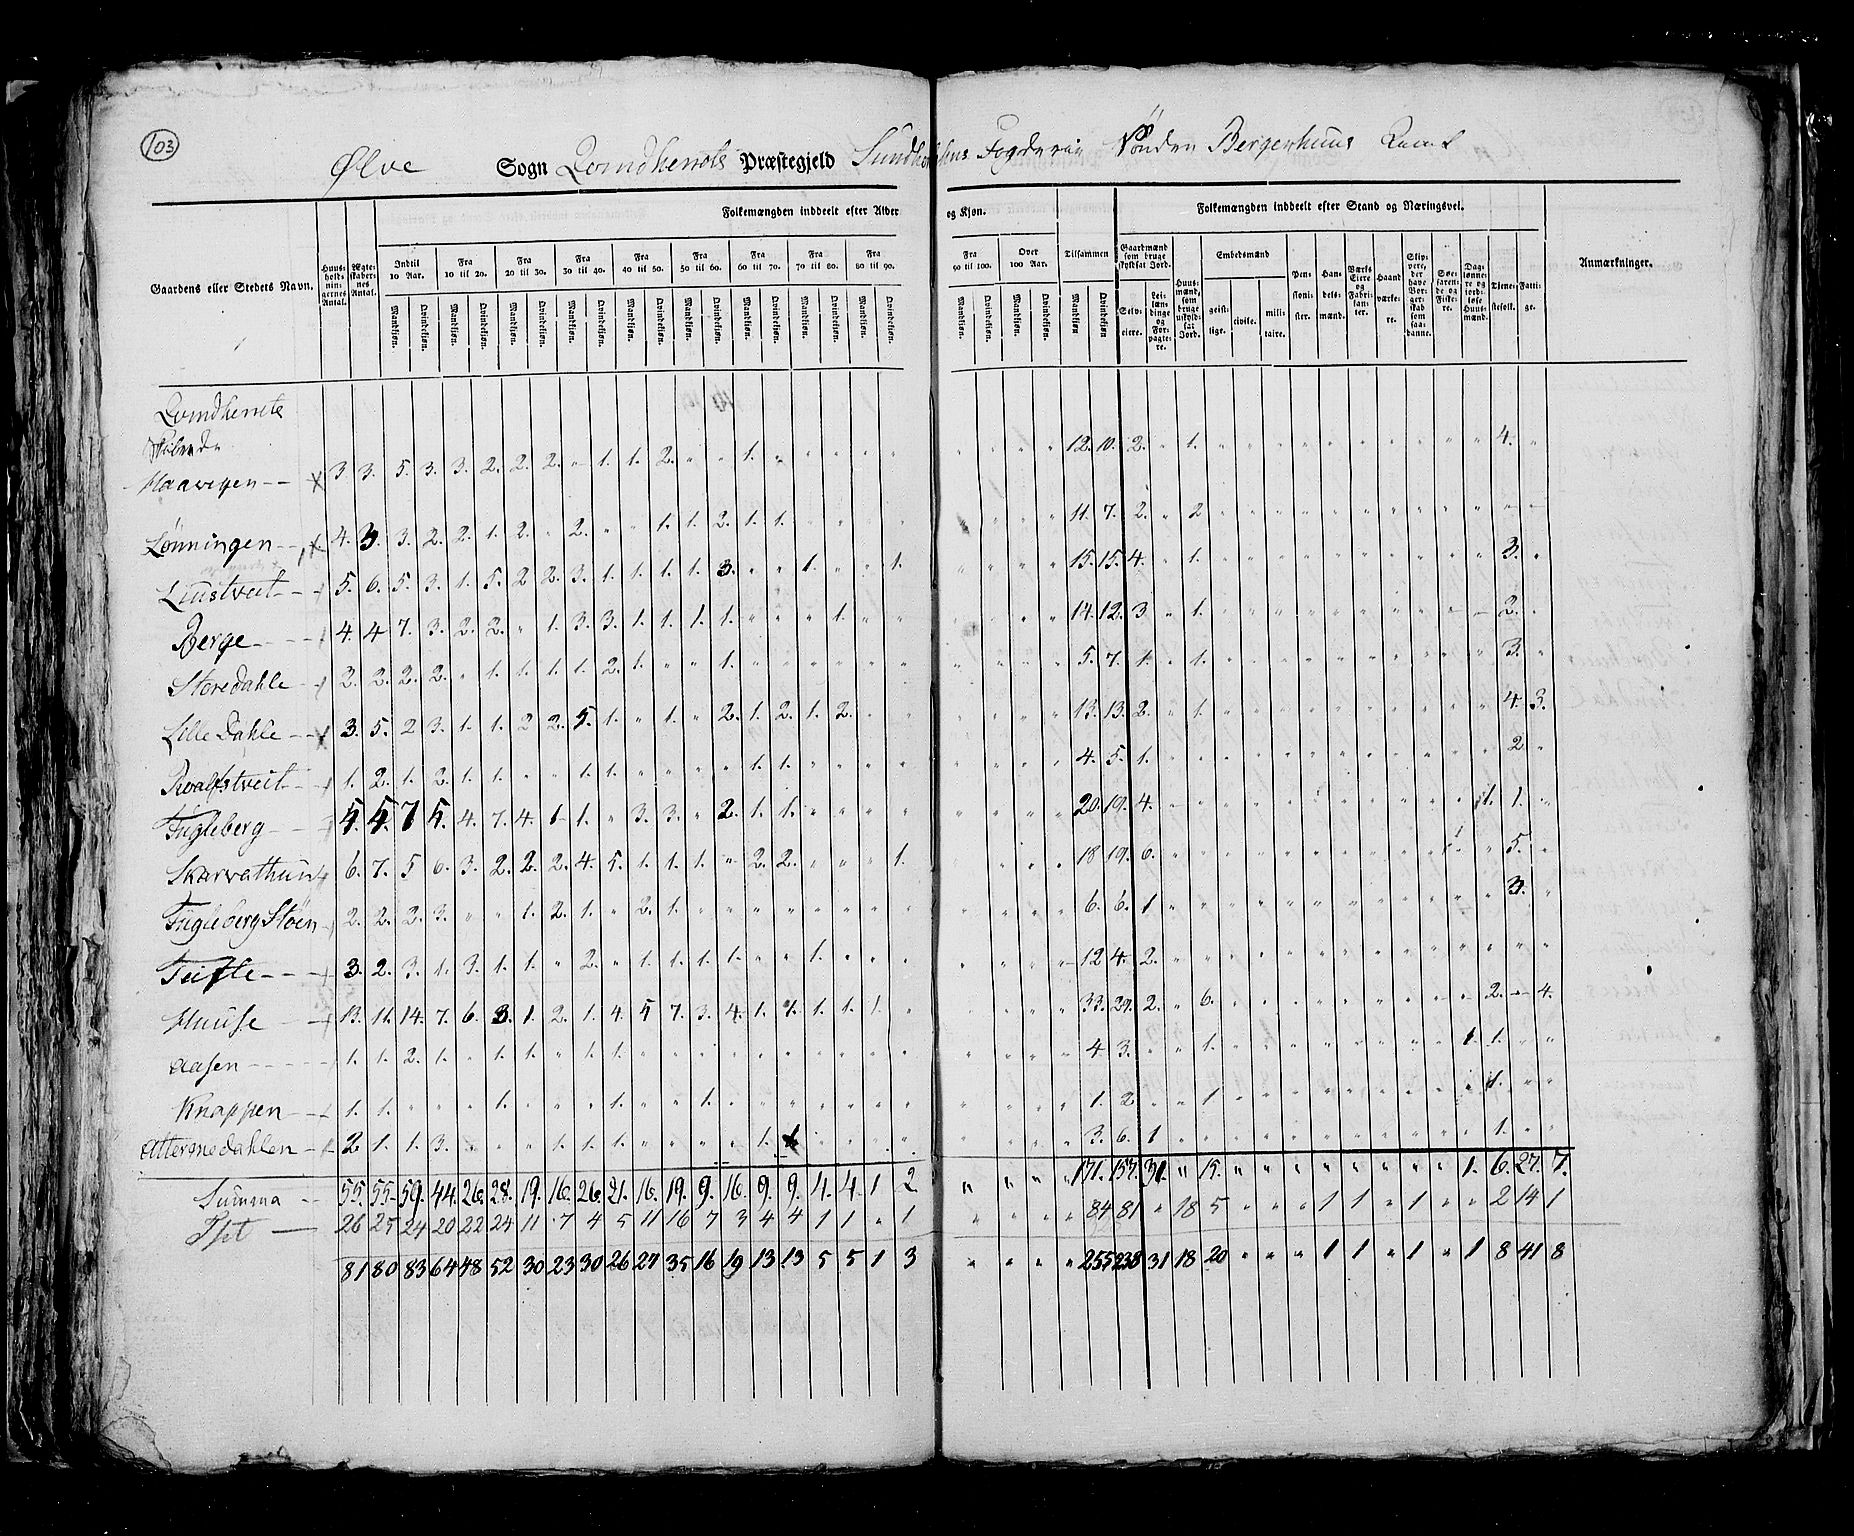 103
Ølve Sogn Qvindherrets Præstegjeld Sundhorlens Fogderie Sönden Bergenhuus Amt
Folkemængden inddeelt efter Alder og Kjøn. Folkemængden inddeelt efter Stand og Næringsvei.
Gaardens eller Stedets Navn. Huus-holdnin-gernes Antal. Ægte-skaber-nes Antal. Indtil 10 Aar. Fra 10 til 20. Fra 20 til 30. Fra 30 til 40. Fra 40 til 50. Fra 50 til 60. Fra 60 til 70. Fra 70 til 80. Fra 80 til 90. Fra 90 til 100. Over 100 Aar. Tilsammen Gaardmænd som bruge skyldsat Jord. Huus-mænd, som bruge uskyld-sat Jord. Embedsmænd Pen-sioni-ster. Han-dels-mænd. Værks Eiere og Fabri-kan-ter. Haand værke-re. Slip-pere, der have Bor-ger-skab som saa-danne. Søe-farende og Fiske-re. Dag-lønne-re og jord-løse Huus-mænd. Tjene-stefolk. Fatti-ge. Anmærkninger.
Mandkjøn. Qvindekjøn. Selv-eiere. Lei-læn-dinge og For-pagte-re. geist-lige. civile. mili-taire.
Qvindherrets
Skibrede
Haavigen 3 3. 5. 3. 3. 2. 2. 2. " 1. 1. 2. " " 1. " " " " " 12. 10. 2. " 1. 4. "
Lønningen 4. 3. 3. 2. 2. 1. 2. " 2. " " 1. 1. 2. 1. 1. 11. 7. 2. " 2
Liustveit 5. 6. 5. 3. 1. 5. 2 2. 3. 1. 1. 1. 1. 3. " " 1. " " 1. 15. 15. 4. " 1. 3. "
Berge 4. 4 7. 3. 2. 2. " 1. 3. 3. 1. 1. 1. 1. " " " 1. " " 14. 12. 3 " 1. 2. "
Storedahle 2. 2. 2. 2. " 1. 1. 1. 1. 2. 1. " " 1. " " " " " " 5. 7. 1. " 1. 3. "
Lille Dahle 3. 5. 2 3. 1. 1. 2 2. 5. 1. " 1. " 2. 1. 2. 1. 2. " " 13. 13. 2. " 1. 4. 3.
Roalfstveit 1. 2. 1. 2. 1. 1. " " 1. 1. " " " " 1. 1. " " " " 4. 5. 1. 2 "
Fugleberg 5. 5. 7 5. 4. 7. 4. 1 1. " 3. 3. " 2. 1. 1. " " " " 20. 19. 4. 1. 1. "
Skarvathun 6. 7. 5 6. 3. 2. 2. 2. 4. 5. 1. 1. 1. " 2. 2. " " " 1. 18 19. 6. 1 5. "
Fugleberg Støen 2. 2. 2. 3. " " 1. 2. 1. " 2. 1. " " " " " " " " 6. 6. 1 3. "
Tufte 3. 2. 3. 1. 3. 1. 1. " 2. " 1. 1. 1. 1. " " 1. " " " 12 4. 2.
Huuse 13. 11. 14. 7. 6. 3. 1. 2. 1. 4. 5 7. 3. 4. 1. 1. 1. 1. 1 " 33. 29. 2. " 6. 2. 4.
Aasen 1. 1. 2. 1. " 1. 1. " 1. 1. " " " " " " " " " " 4 3. " " 1. 1. 1. "
Knappen 1. 1. " " " 1. " " " 1. " " 1. " " " " " " " 1. 2 " " 1 1. " "
Attermedahlen 2 1. 1. 3. " " " 1. 1. 1. " " " " 1. 1 " " " " 3. 6. 1 1. " "
Summa 55. 55. 59. 44. 26. 28. 19. 16. 26. 21. 16. 19. 9. 16. 9. 9. 4. 4. 1 2 " " " " 171. 157. 31. " 15. " " " " " " " " 1. 6. 27. 7.
26 25 24 20 22 24 11 7 4 5 11 16 7 3 4 4 1 1 " 1 " " " " 84 81 " 18 5 " " " 1 1 " 1 " " 2 14 1
81 80 83 64 48 52 30 23 30 26 27 35 16 19 13 13 5 5 1 3 " " " " 255 238 31 18 20 " " " 1 1 " 1 " 1 8 41 8